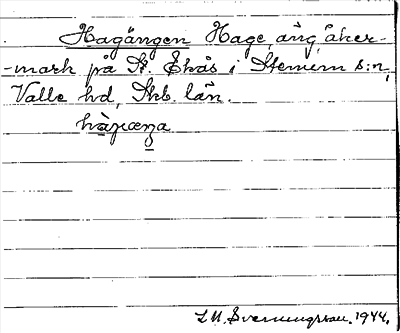 Hagängen Hage, äng, åker-
-mark på St. Ekås i Stenum s:n,
Valle hd, Skb. län.
L M. Svenungsson. 1944.